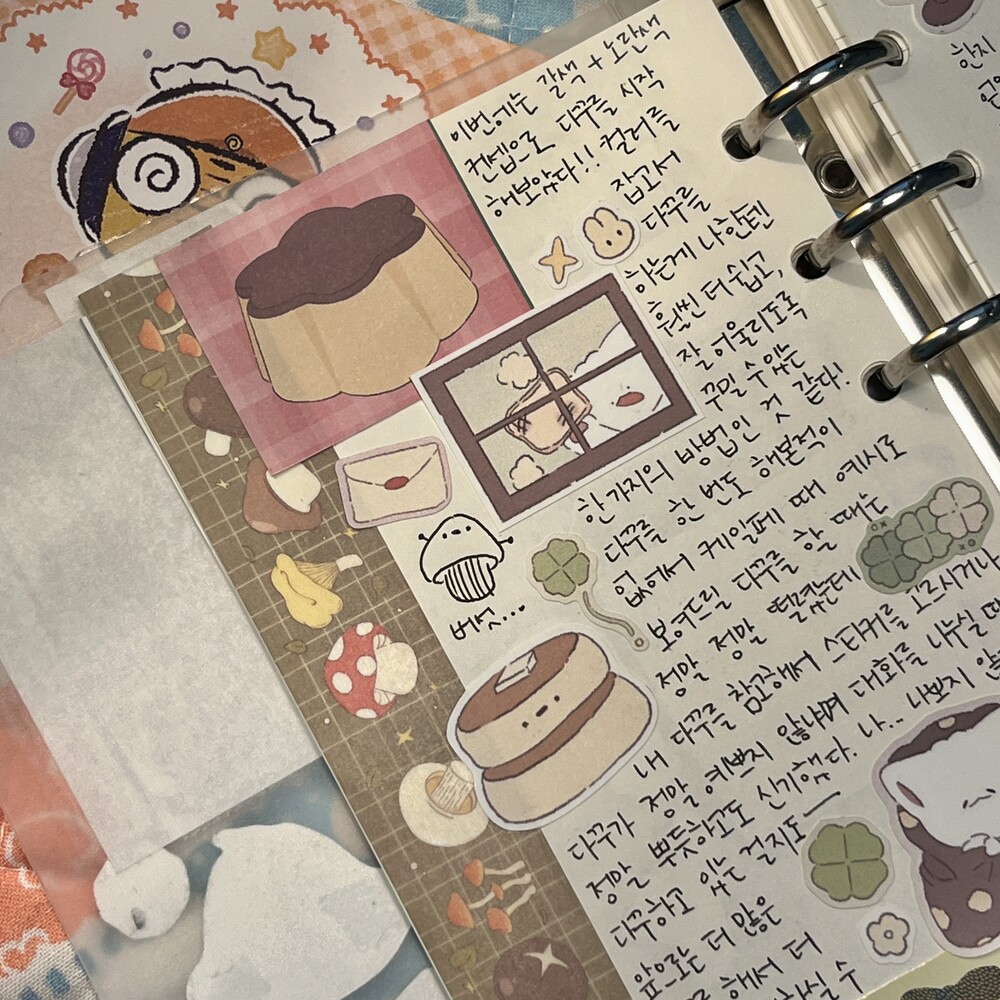 이번에는 갈색 + 노란색
컨셉으로 다꾸를 시작
해보았다!! 컬러를
잡고서
다꾸를
하는게 나한텐
훨씬 더 쉽고,
잘 어울리도록
꾸밀 수 있는
한가지의 방법인 것 같다!
다꾸를 한 번도 해본적이
없어서 케일페 때 예시로
보여드릴 다꾸를 할 때는
정말 정말 떨렸는데
내 다꾸를 참고해서 스티커를 고르시거나
다꾸가 정말 예쁘지 않냐며 대화를 나누실 때
정말 뿌듯하고도 신기했다. 나.. 나쁘지 않
다꾸하고 있는 걸지도
앞으로는 더 많은
해서 더
하실 수
버섯...
한지